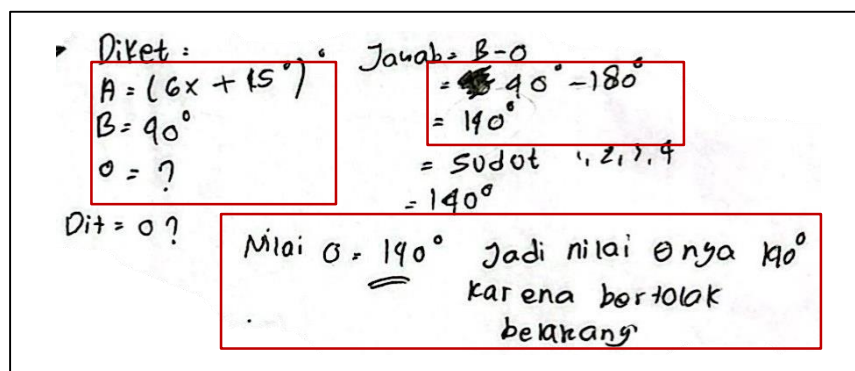 Diket :
A = (6x + 15°)°
B = 40°
θ = ?
Dit = θ ?
Jawab = B - θ
= 40° - 180°
= 140°
= Sudut 1, 2, 3, 4
= 140°
Nilai θ = 140° Jadi nilai θ nya 140°
karena bertolak
belakang